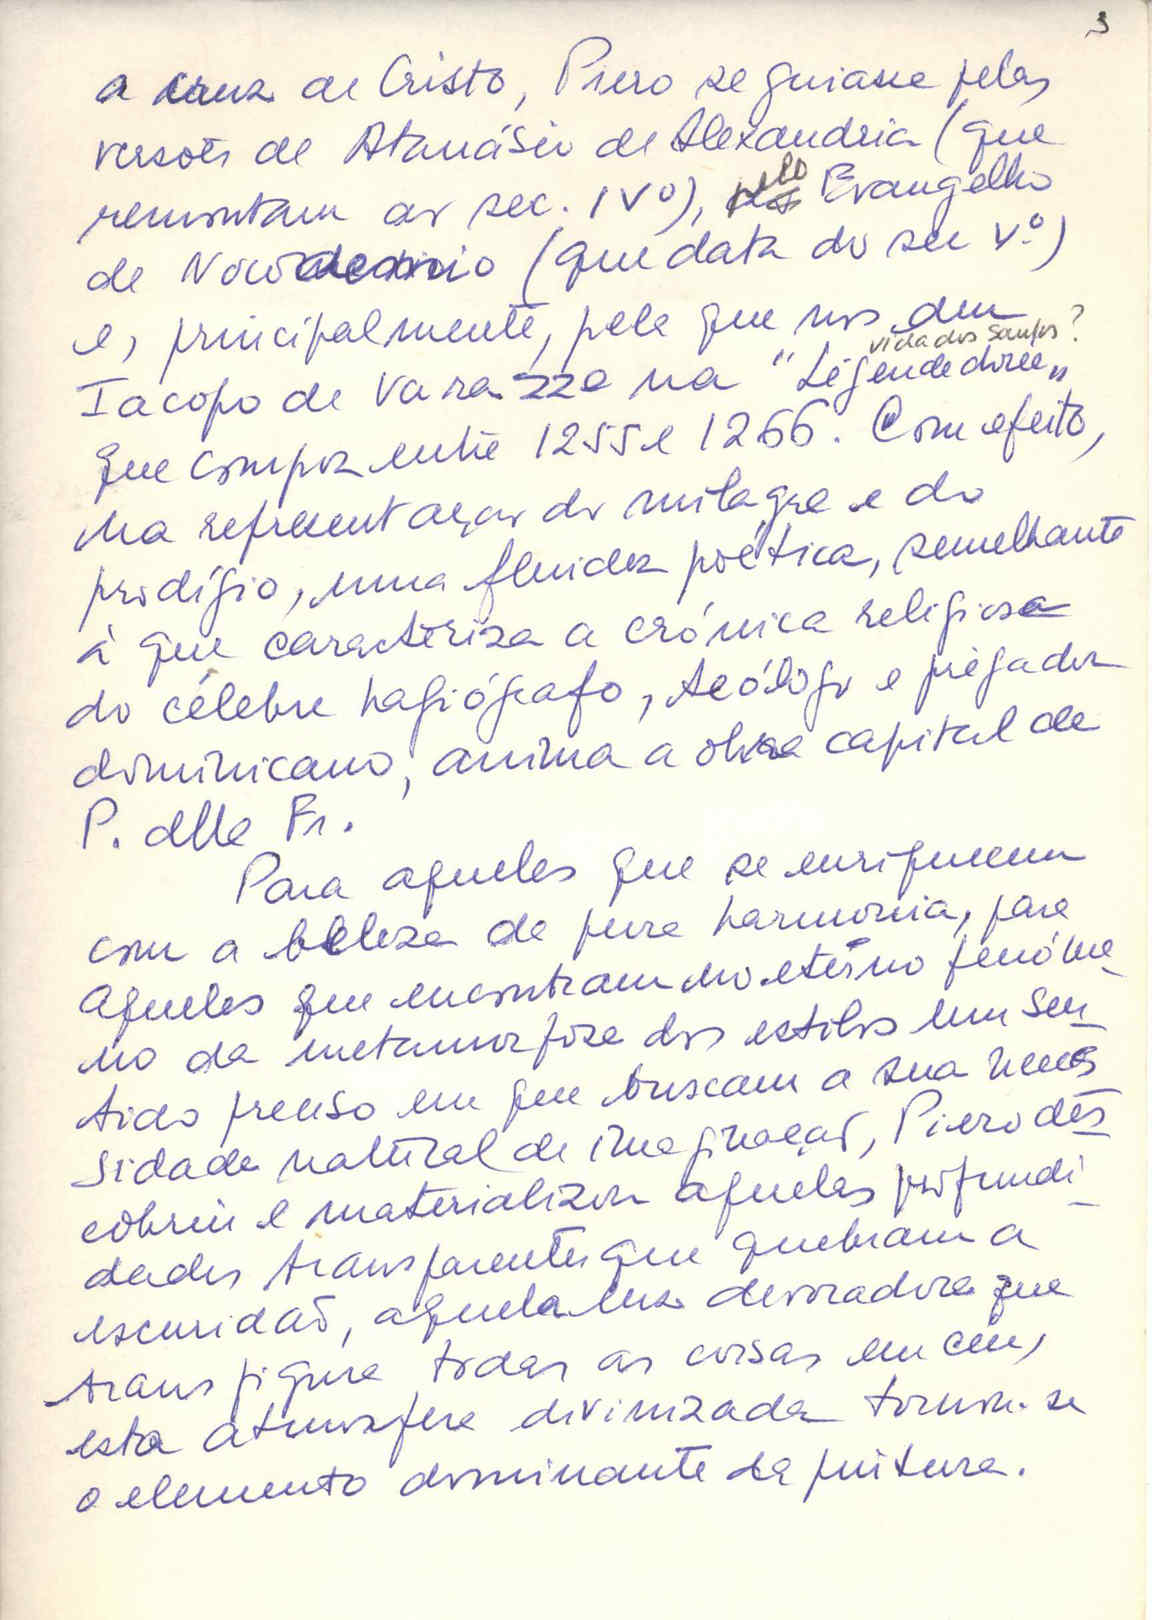 3
a cruz de Cristo, Piero se guiasse pelas
versões de Atanásio de Alexandria (que
remontam ao sec. IVº), pelo Evangelho
de Nicodemio (que data do sec Vº)
e, principalmente, pela que nos deu
vida dos Santos?
Iacopo de Varazze na "Légende dorée"
que compoz entre 1255 e 1266. Com efeito,
na representação do milagre e do
prodígio, uma fluidez poética, semelhante
à que caracteriza a crónica religiosa
do célebre hagiógrafo, teólogo e prègador
dominicano, anima a obra capital de
P. della Fr.
Para aqueles que se enriquecem
com a beleza da pura harmonia, para
aqueles que encontram no eterno fenóme-
no da metamorfose dos estilos um sen-
tido preciso em que buscam a sua neces
sidade natural de imaginação, Piero des-
cobriu e materializou aquelas profundi-
dades transparentes que quebram a
escuridão, aquela luz devoradora que
transfigura todas as coisas em céu,
esta atmosfera divinizada tornou-se
o elemento dominante da pintura.